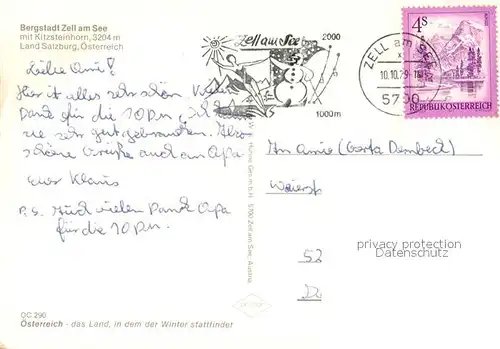 Bergstadt Zell am See
mit Kitzsteinhorn, 3204 m
Land Salzburg, Österreich
Zell am See
2000
1000m
ZELL am SEE
10.10.79-18
5700
4S
REPUBLIK ÖSTERREICH
Liebe Omi!
Hier ist alles sehr schön. Vielen
Dank für die 10 Dm. Ich
sie sehr gut gebrauchen. Also
schöne Grüße auch an Opa
euer Klaus
P.S. Auch vielen Dank Opa
für die 10 Dm.
An Omi (Gerta Dembeck)
52
22
privacy protection
Datenschutz
5700 Zell am See, Austria
OC 290
Österreich - das Land, in dem der Winter stattfindet